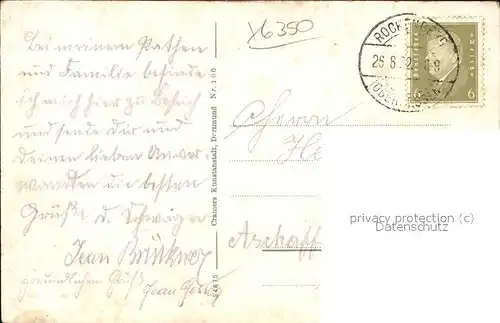 X6350
Bei meinem Pathen
und Familie befinde
ich mich hier zu Besuch
und sende dir und
deinen lieben Anver-
wandten die besten
Grüße d. Schwager
Jean
freundlichen Gruß
Jean
Cramers Kunstanstalt, Dortmund Nr. 166
ROCKENBERG
26.6.32
(OBERHESSEN)
6 6
Herrn
He
Aschaff
privacy protection (c)
Datenschutz